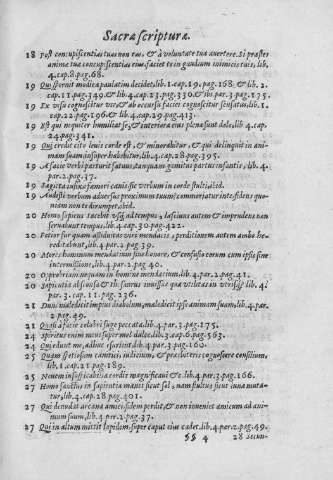 Sacræ scripturæ.
18 Post concupiscentias tuas non eas, & à voluntate tua avertere. Si præstes
animæ tuæ concupiscentias eius, faciet te in gaudium inimicis tuis, lib.
4. cap. 8. pag. 68.
19 Qui spernit modica paulatim decidet, lib. 1. cap. 19. pag. 168. & lib. 2.
cap. 11. pag. 349. & lib. 4. cap. 27. pag. 330. & ibi. par. 3. pag. 175.
19 Ex visu cognoscitur vir, & ab occursu faciei cognoscitur sensatus, lib. 1.
cap. 22. pag. 196. & lib. 4. cap. 29. pag. 413.
19 Est qui nequiter humiliat se, & interiora eius plena sunt dolo, lib. 4. cap.
24. pag. 341.
19 Qui credit citò levis corde est, & minorabitur, & qui delinquit in ani-
mam suam insuper habebitur, lib. 4. cap. 28. pag. 395.
19 A facie verbi parturit fatuus, tanquam gemitus partus infantis, lib. 4.
par. 2. pag. 37.
19 Sagitta infixa femori canis sic verbum in corde stulti, ibid.
19 Audisti verbum adversus proximum tuum; commoriatur in te fidens quo-
niam non te dirumpet, ibid.
20 Homo sapiens tacebit usque ad tempus, lascivus autem & imprudens non
servabunt tempus, lib. 4. cap. 30. pag. 422.
20 Potior fur quam assiduitas viri mendacis, perditionem autem ambo hæ-
reditabunt, lib. 4. par. 2. pag. 39.
20 Mores hominum mendacium sine honore, & confusio eorum cum ipsis sine
intermissione, lib. 4. par. 2. pag. 40.
20 Opprobrium nequam in homine mendacium, lib. 4. par. 2. pag. 41.
20 Sapientia absconsa & thesaurus invisus quæ utilitas in utrisque, lib. 4.
par. 3. cap. 11. pag. 136.
21 Dum maledicit impius diabolum, maledicit ipse animam suam, lib. 4. par.
2. pag. 49.
21 Quasi à facie colubri fuge peccata, lib. 4. par. 3. pag. 175.
24 Spiritus enim meus super mel dulcis, lib. 3. cap. 6. pag. 563.
24 Qui edunt me, adhuc esurient, lib. 4. par. 3. pag. 160.
25 Quàm speciosum canitiei, iudicium, & præsbyteris cognoscere consilium,
lib. 1. cap. 21. pag. 189.
25 Novem insuspicabilia cordis magnificavi & c. lib. 4. par. 3. pag. 166.
27 Homo sanctus in sapientia manet sicut sol, nam stultus sicut luna muta-
tur, lib. 4. cap. 28. pag. 401.
27 Qui denudat arcana amici, fidem perdit, & non inveniet amicum ad ani-
mum suum, lib. 4. par. 2. pag. 37.
27 Qui in altum mittit lapidem, super caput eius cadet, lib. 4. par. 2. pag. 49.
§§ 4 28 secun-